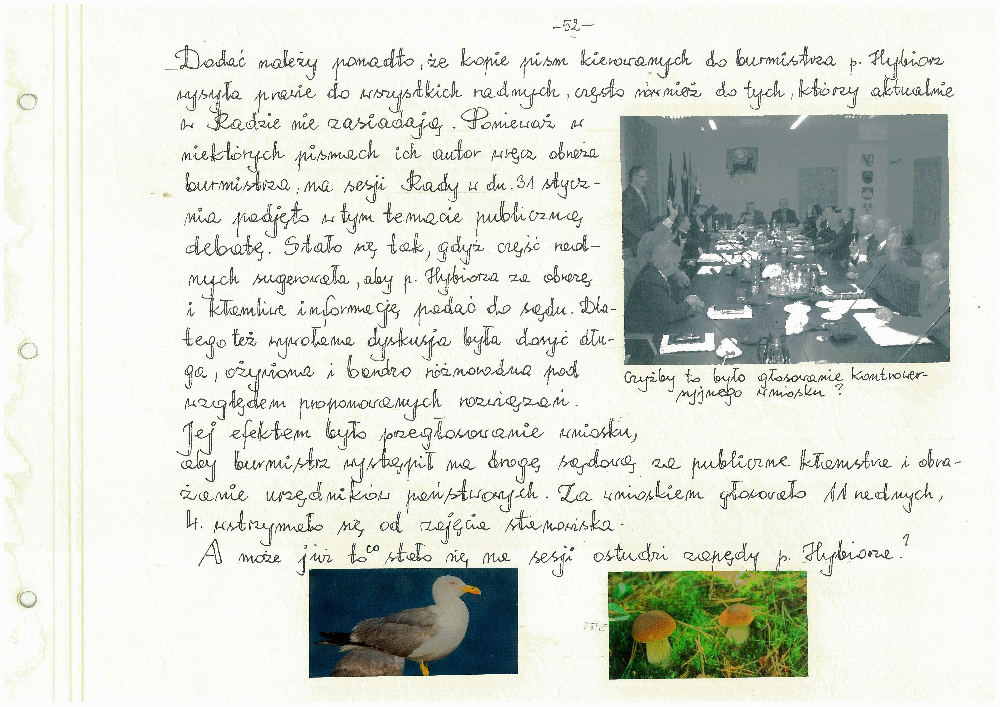 -52-
Dodać należy ponadto, że kopie pism kierowanych do burmistrza p. Hybiorz
wysyła prawie do wszystkich radnych, często również do tych, którzy aktualnie
w Radzie nie zasiadają. Ponieważ w
niektórych pismach ich autor wręcz obraża
burmistrza, na sesji Rady w dn. 31 stycz-
nia podjęto w tym temacie publiczną
debatę. Stało się tak, gdyż część rad-
nych sugerowała, aby p. Hybiorza za obrazę
i kłamliwe informacje podać do sądu. Dla-
tego też wywołana dyskusja była dosyć dłu-
ga, ożywiona i bardzo różnorodna pod
względem proponowanych rozwiązań.
Jej efektem było przegłosowanie wniosku,
aby burmistrz wystąpił na drogę sądową za publiczne kłamstwa i obra-
żanie urzędników państwowych. Za wnioskiem głosowało 11 radnych,
4. wstrzymało się od zajęcia stanowiska.
A może już to co stało się na sesji ostudzi zapędy p. Hybiorza?
Czyżby to było głosowanie kontrower-
syjnego wniosku?